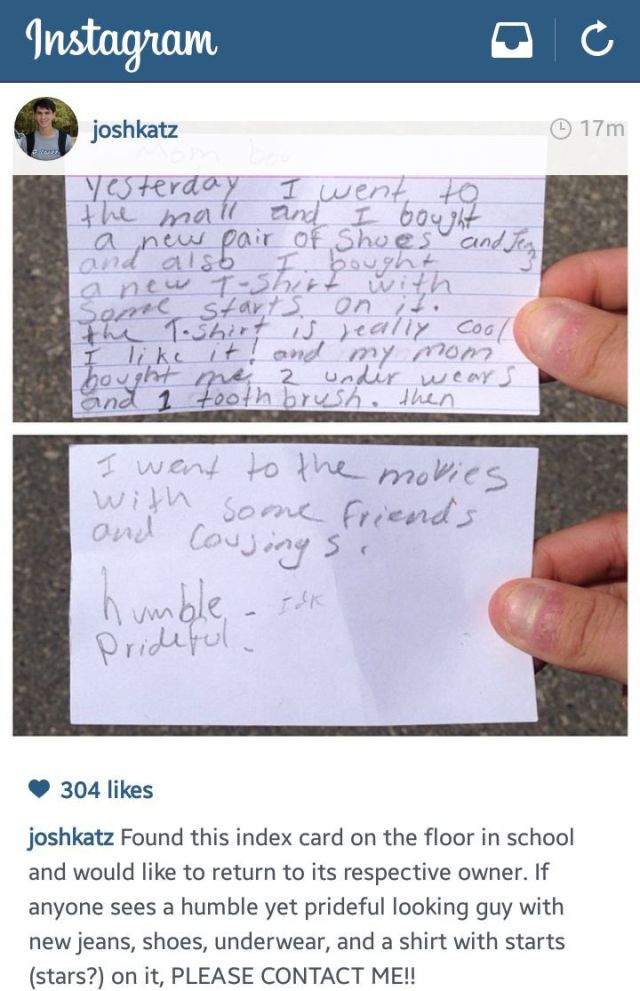 Instagram
joshkatz
17m
Mom bou
Yesterday I went to
the mall and I bought
a new pair of shoes and Jenz
and also I bought
a new T-Shirt with
Some starts on it.
the T-Shirt is really cool
I like it! and my mom
bought me 2 under wears
and 1 tooth brush. then
I went to the movies
with some friends
and cousings.
humble - Idk
Prideful -
304 likes
joshkatz Found this index card on the floor in school
and would like to return to its respective owner. If
anyone sees a humble yet prideful looking guy with
new jeans, shoes, underwear, and a shirt with starts
(stars?) on it, PLEASE CONTACT ME!!